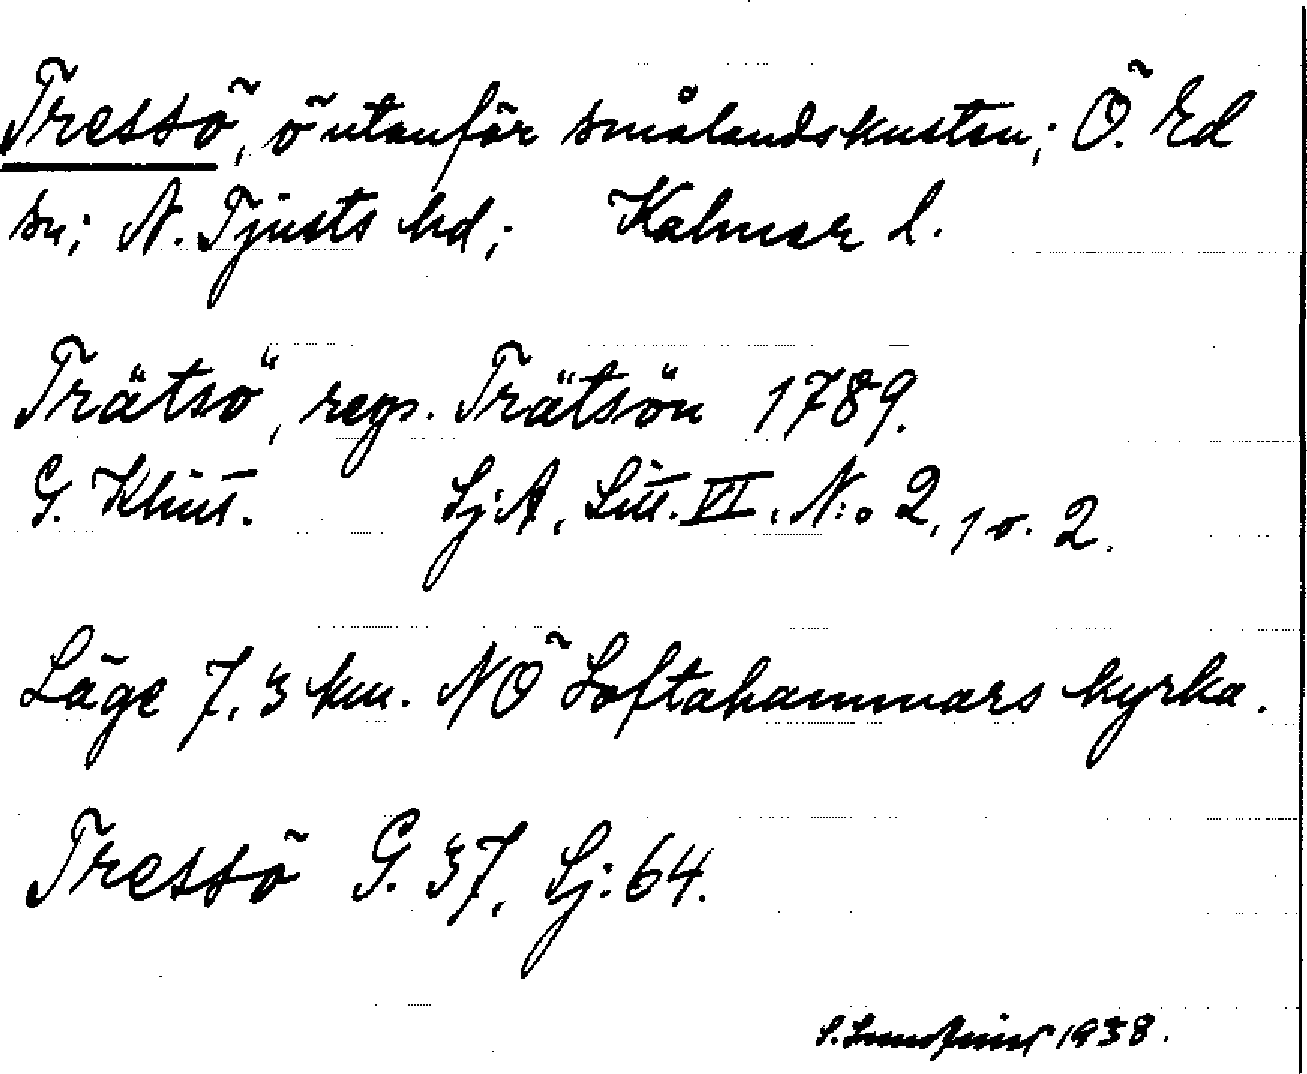 Tressö, ö utanför smålandskusten; Ö. Ed
sn; N. Tjusts hd; Kalmar l.
Trätsö, regs. Trätsön 1789.
G. Klint. Sj:A, Litt. VI, N:o 2, 1 o. 2.
Läge 7,3 km. NÖ Loftahammars kyrka.
Tressö G. 37, Sj: 64.
S. 1938.